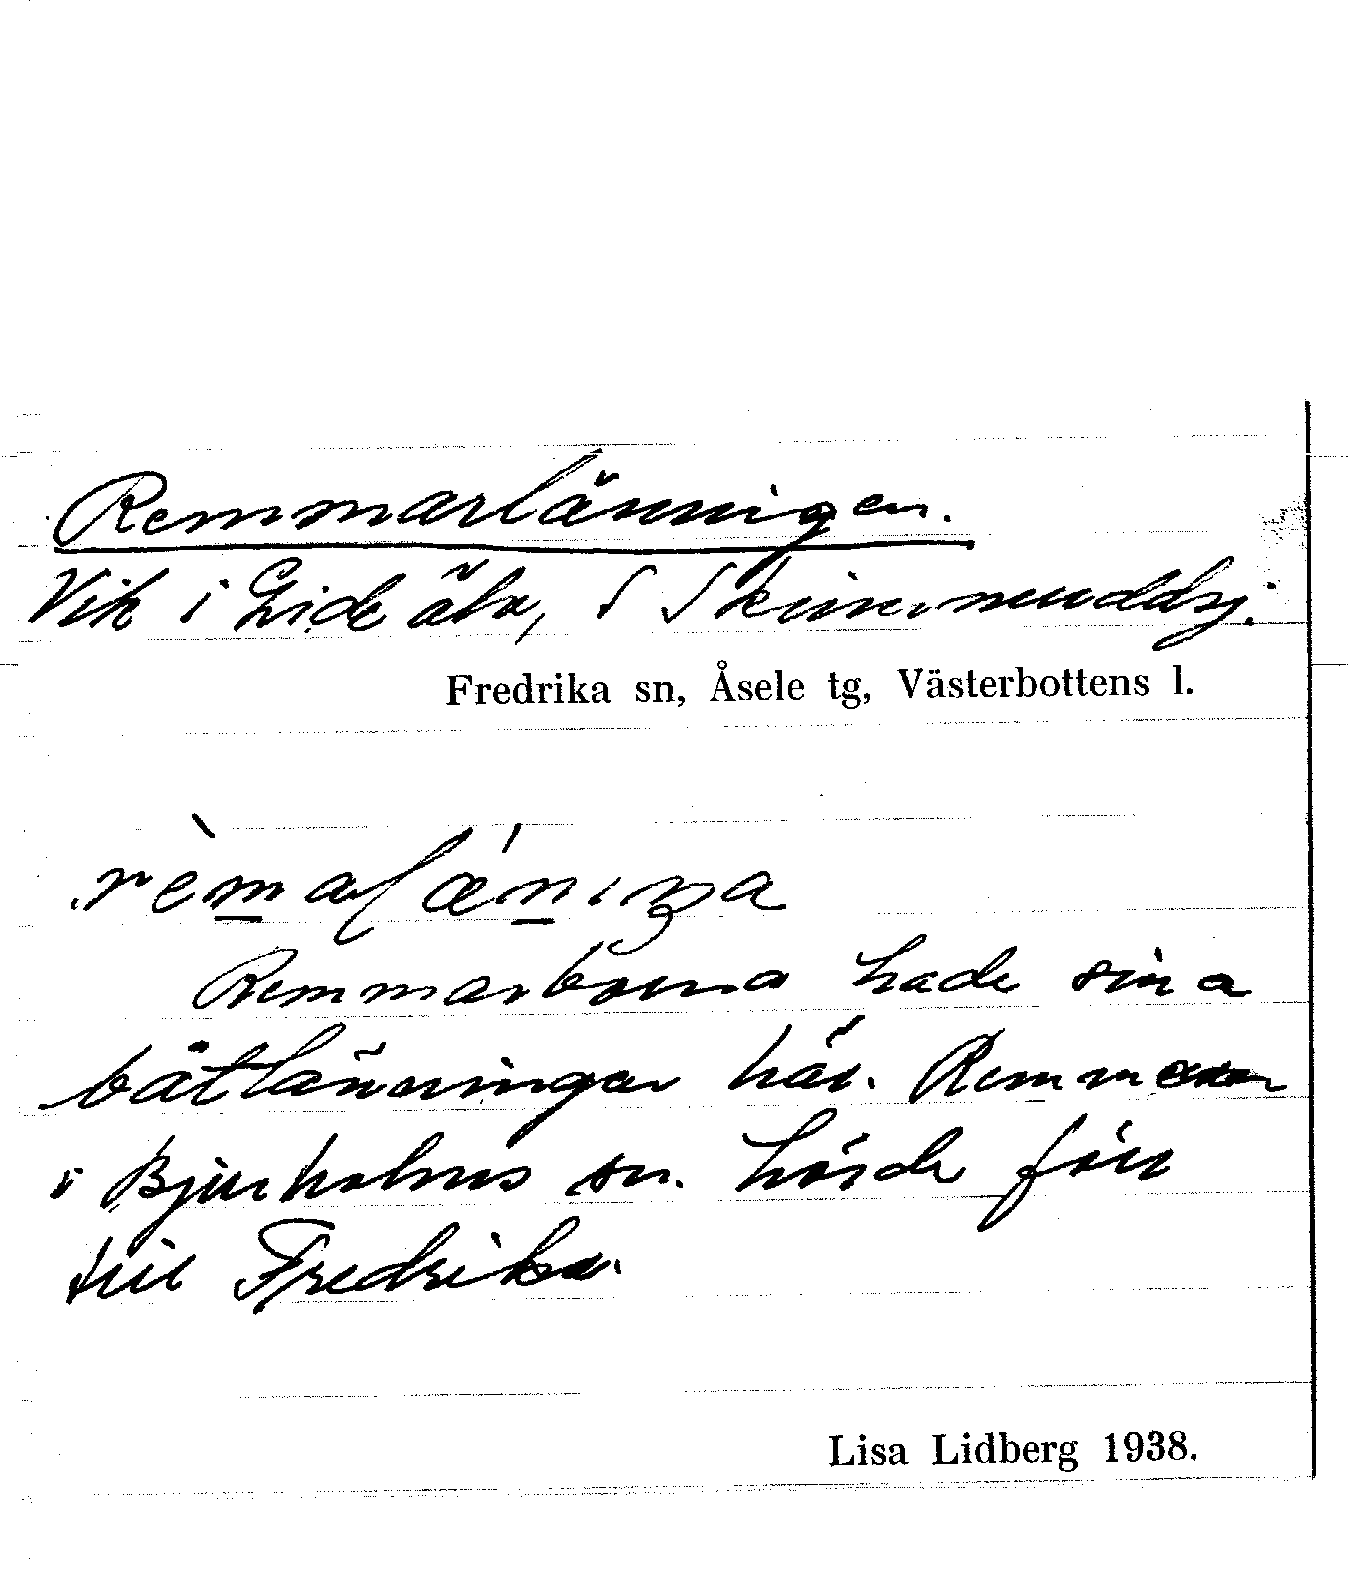 Remmarlänningen.
Vik i Gide älv, S Skinnmuddsj.
Fredrika sn, Åsele tg, Västerbottens l.
Remmarborna hade sina
båtlänningar här. Remmaren
i Bjurholms sn. hörde förr
till Fredrika.
Lisa Lidberg 1938.